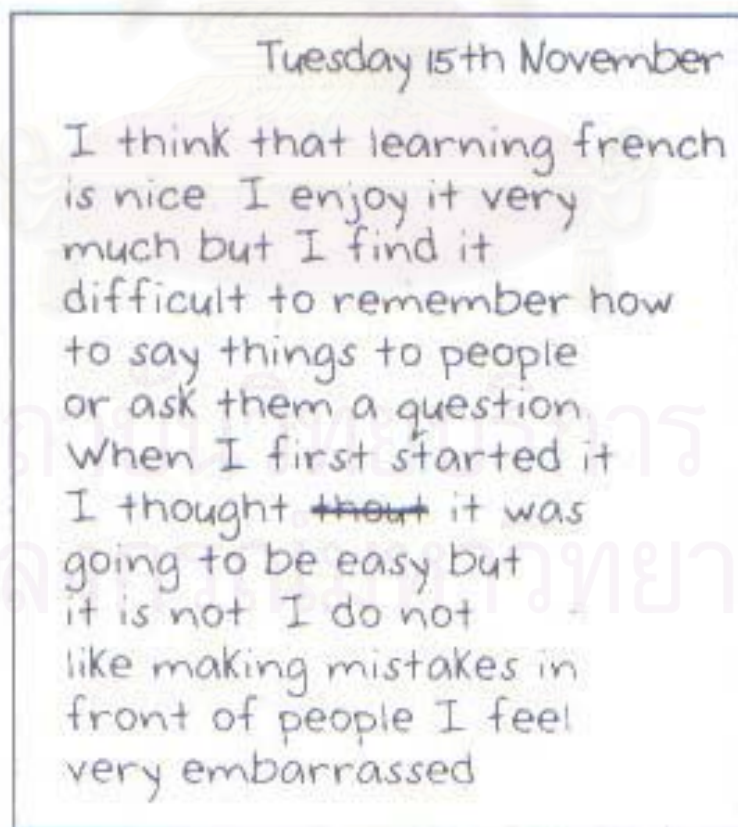 Tuesday 15th November
I think that learning french
is nice. I enjoy it very
much but I find it
difficult to remember how
to say things to people
or ask them a question.
When I first started it
I thought thout it was
going to be easy but
it is not I do not
like making mistakes in
front of people I feel
very embarrassed